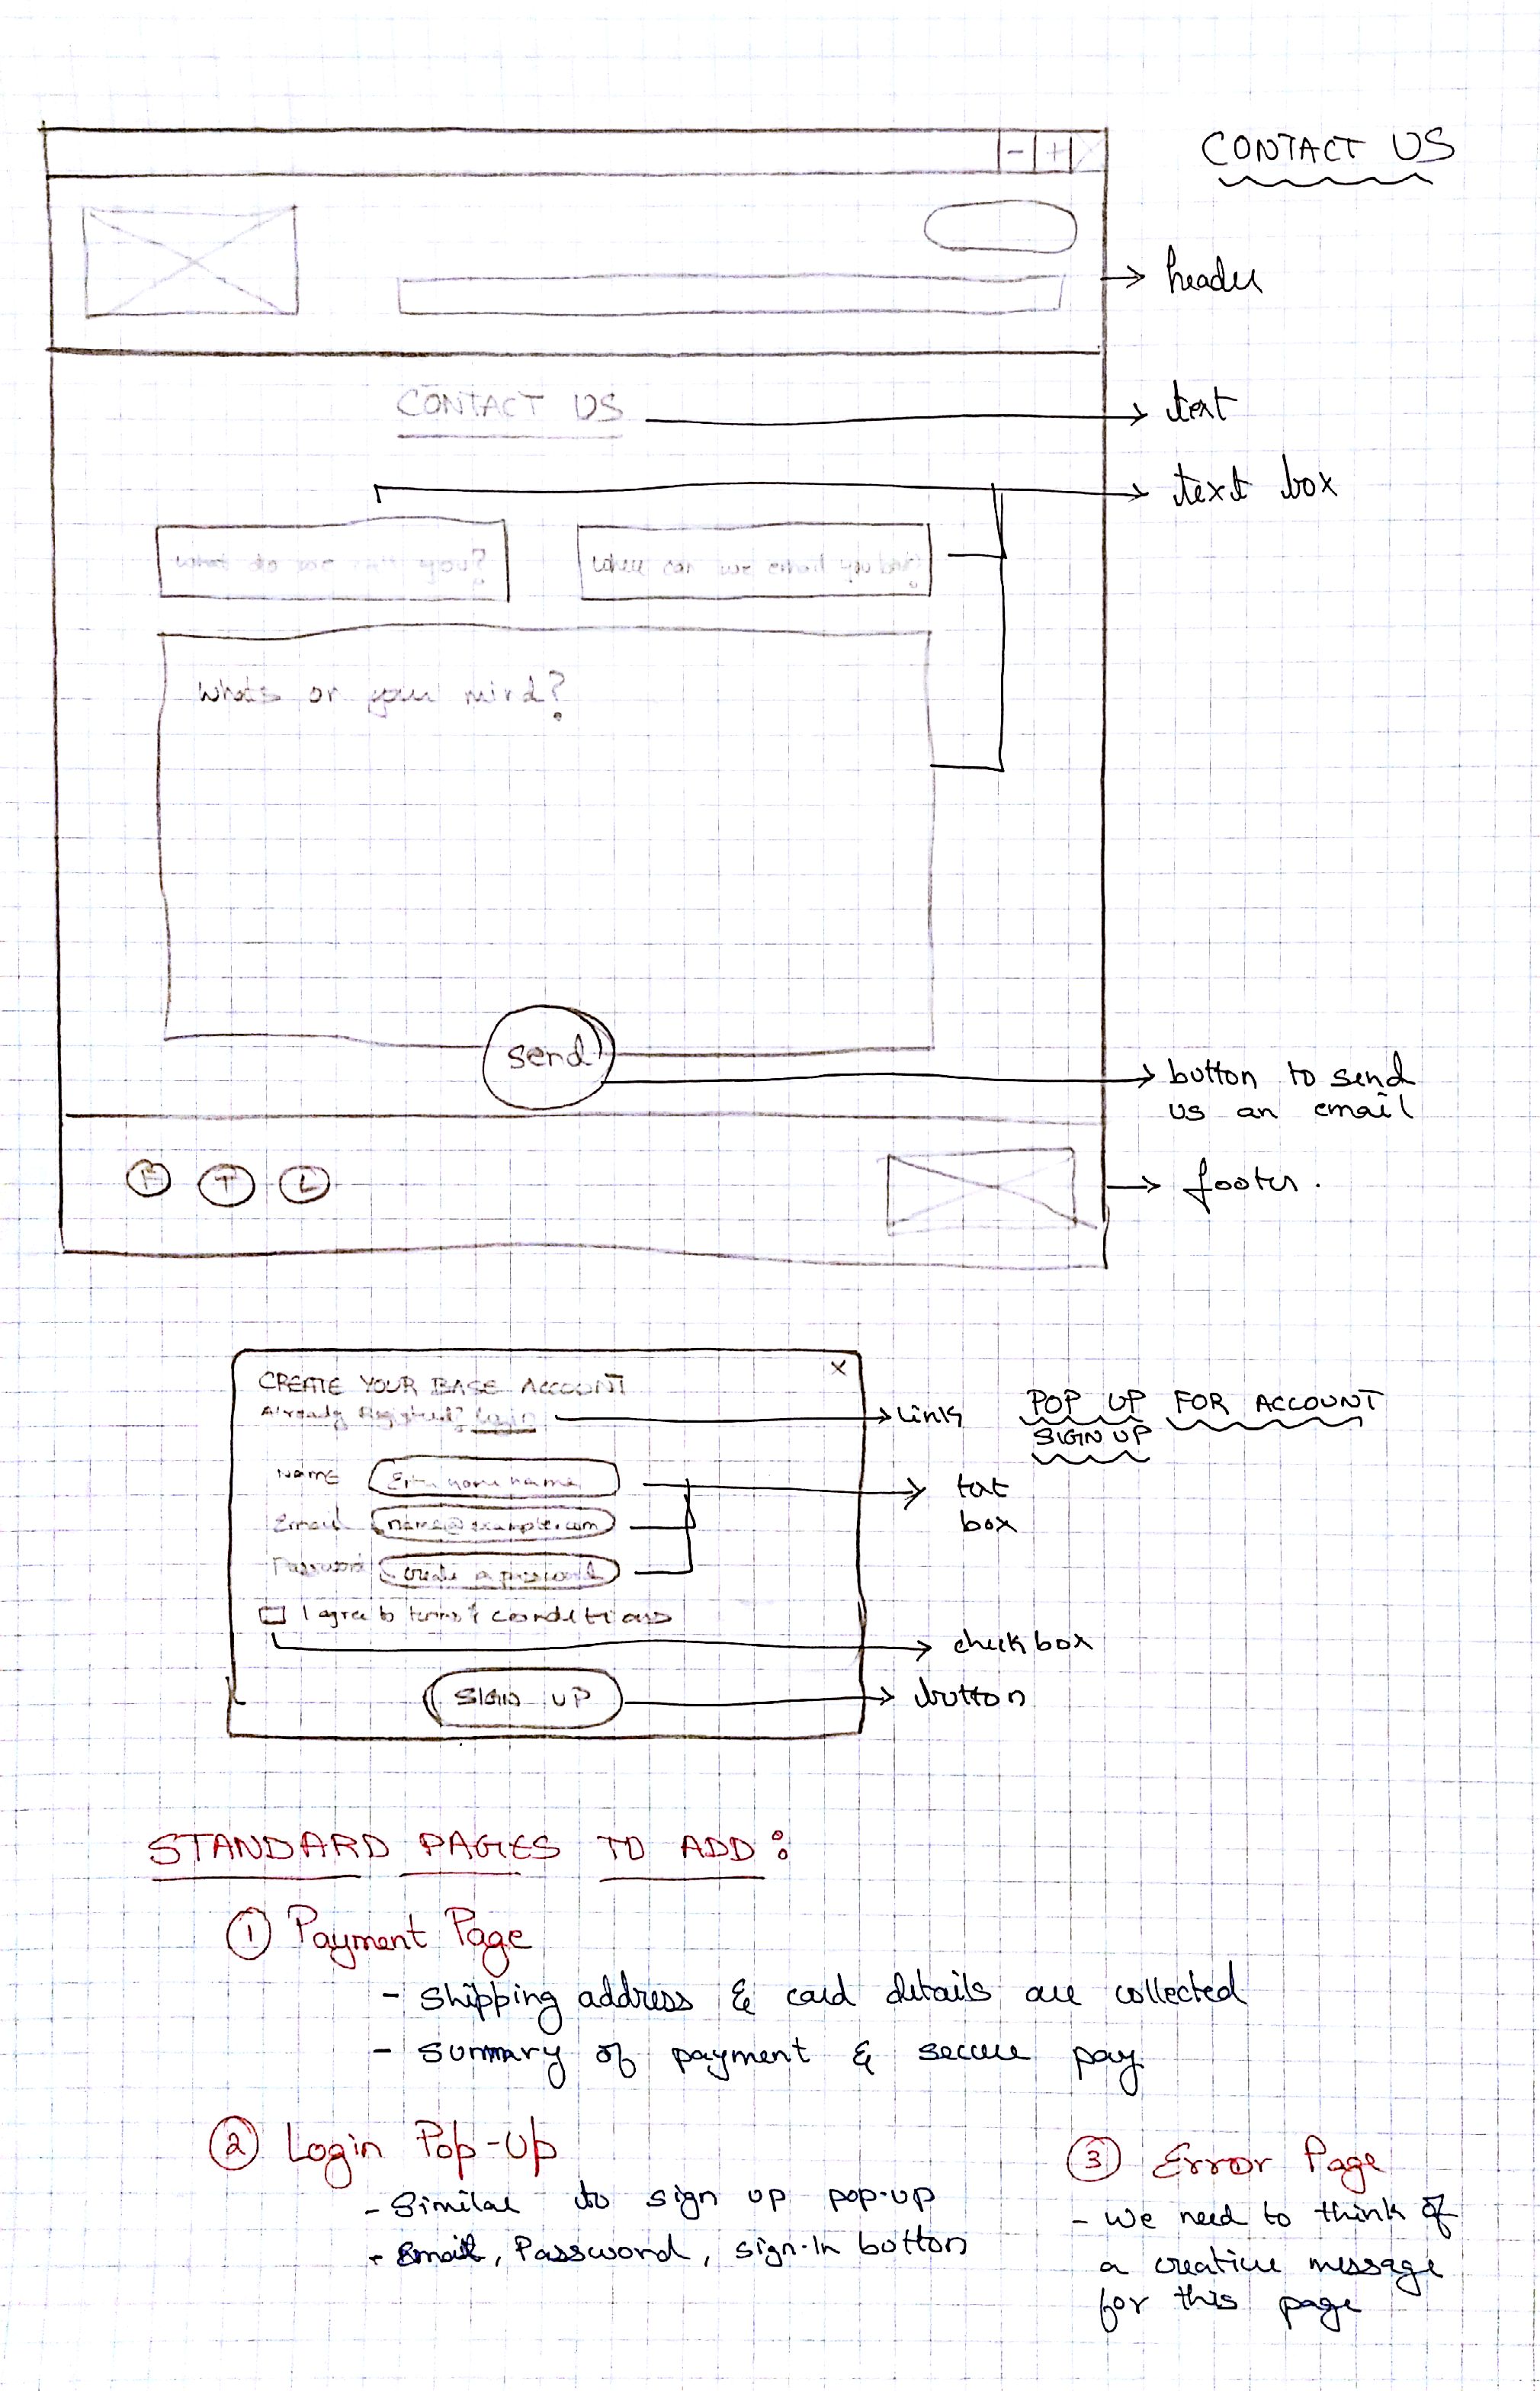 CONTACT US
header
CONTACT US
text
text box
What do we call you?
Where can we email you back?
Whats on your mind?
send
button to send
us an email
F T L
footer.
CREATE YOUR BASE ACCOUNT
X
Already Registered? Login
Link
POP UP FOR ACCOUNT
SIGN UP
NAME
Enter your name
text
box
Email
name@example.com
Password
create a password
I agree to terms & conditions
check box
SIGN UP
button
STANDARD PAGES TO ADD:
① Payment Page
- shipping address & card details are collected
- summary of payment & secure pay
② Login Pop-Up
- Similar to sign up pop-up
- Email, Password, sign-In button
③ Error Page
- We need to think of
a creative message
for this page